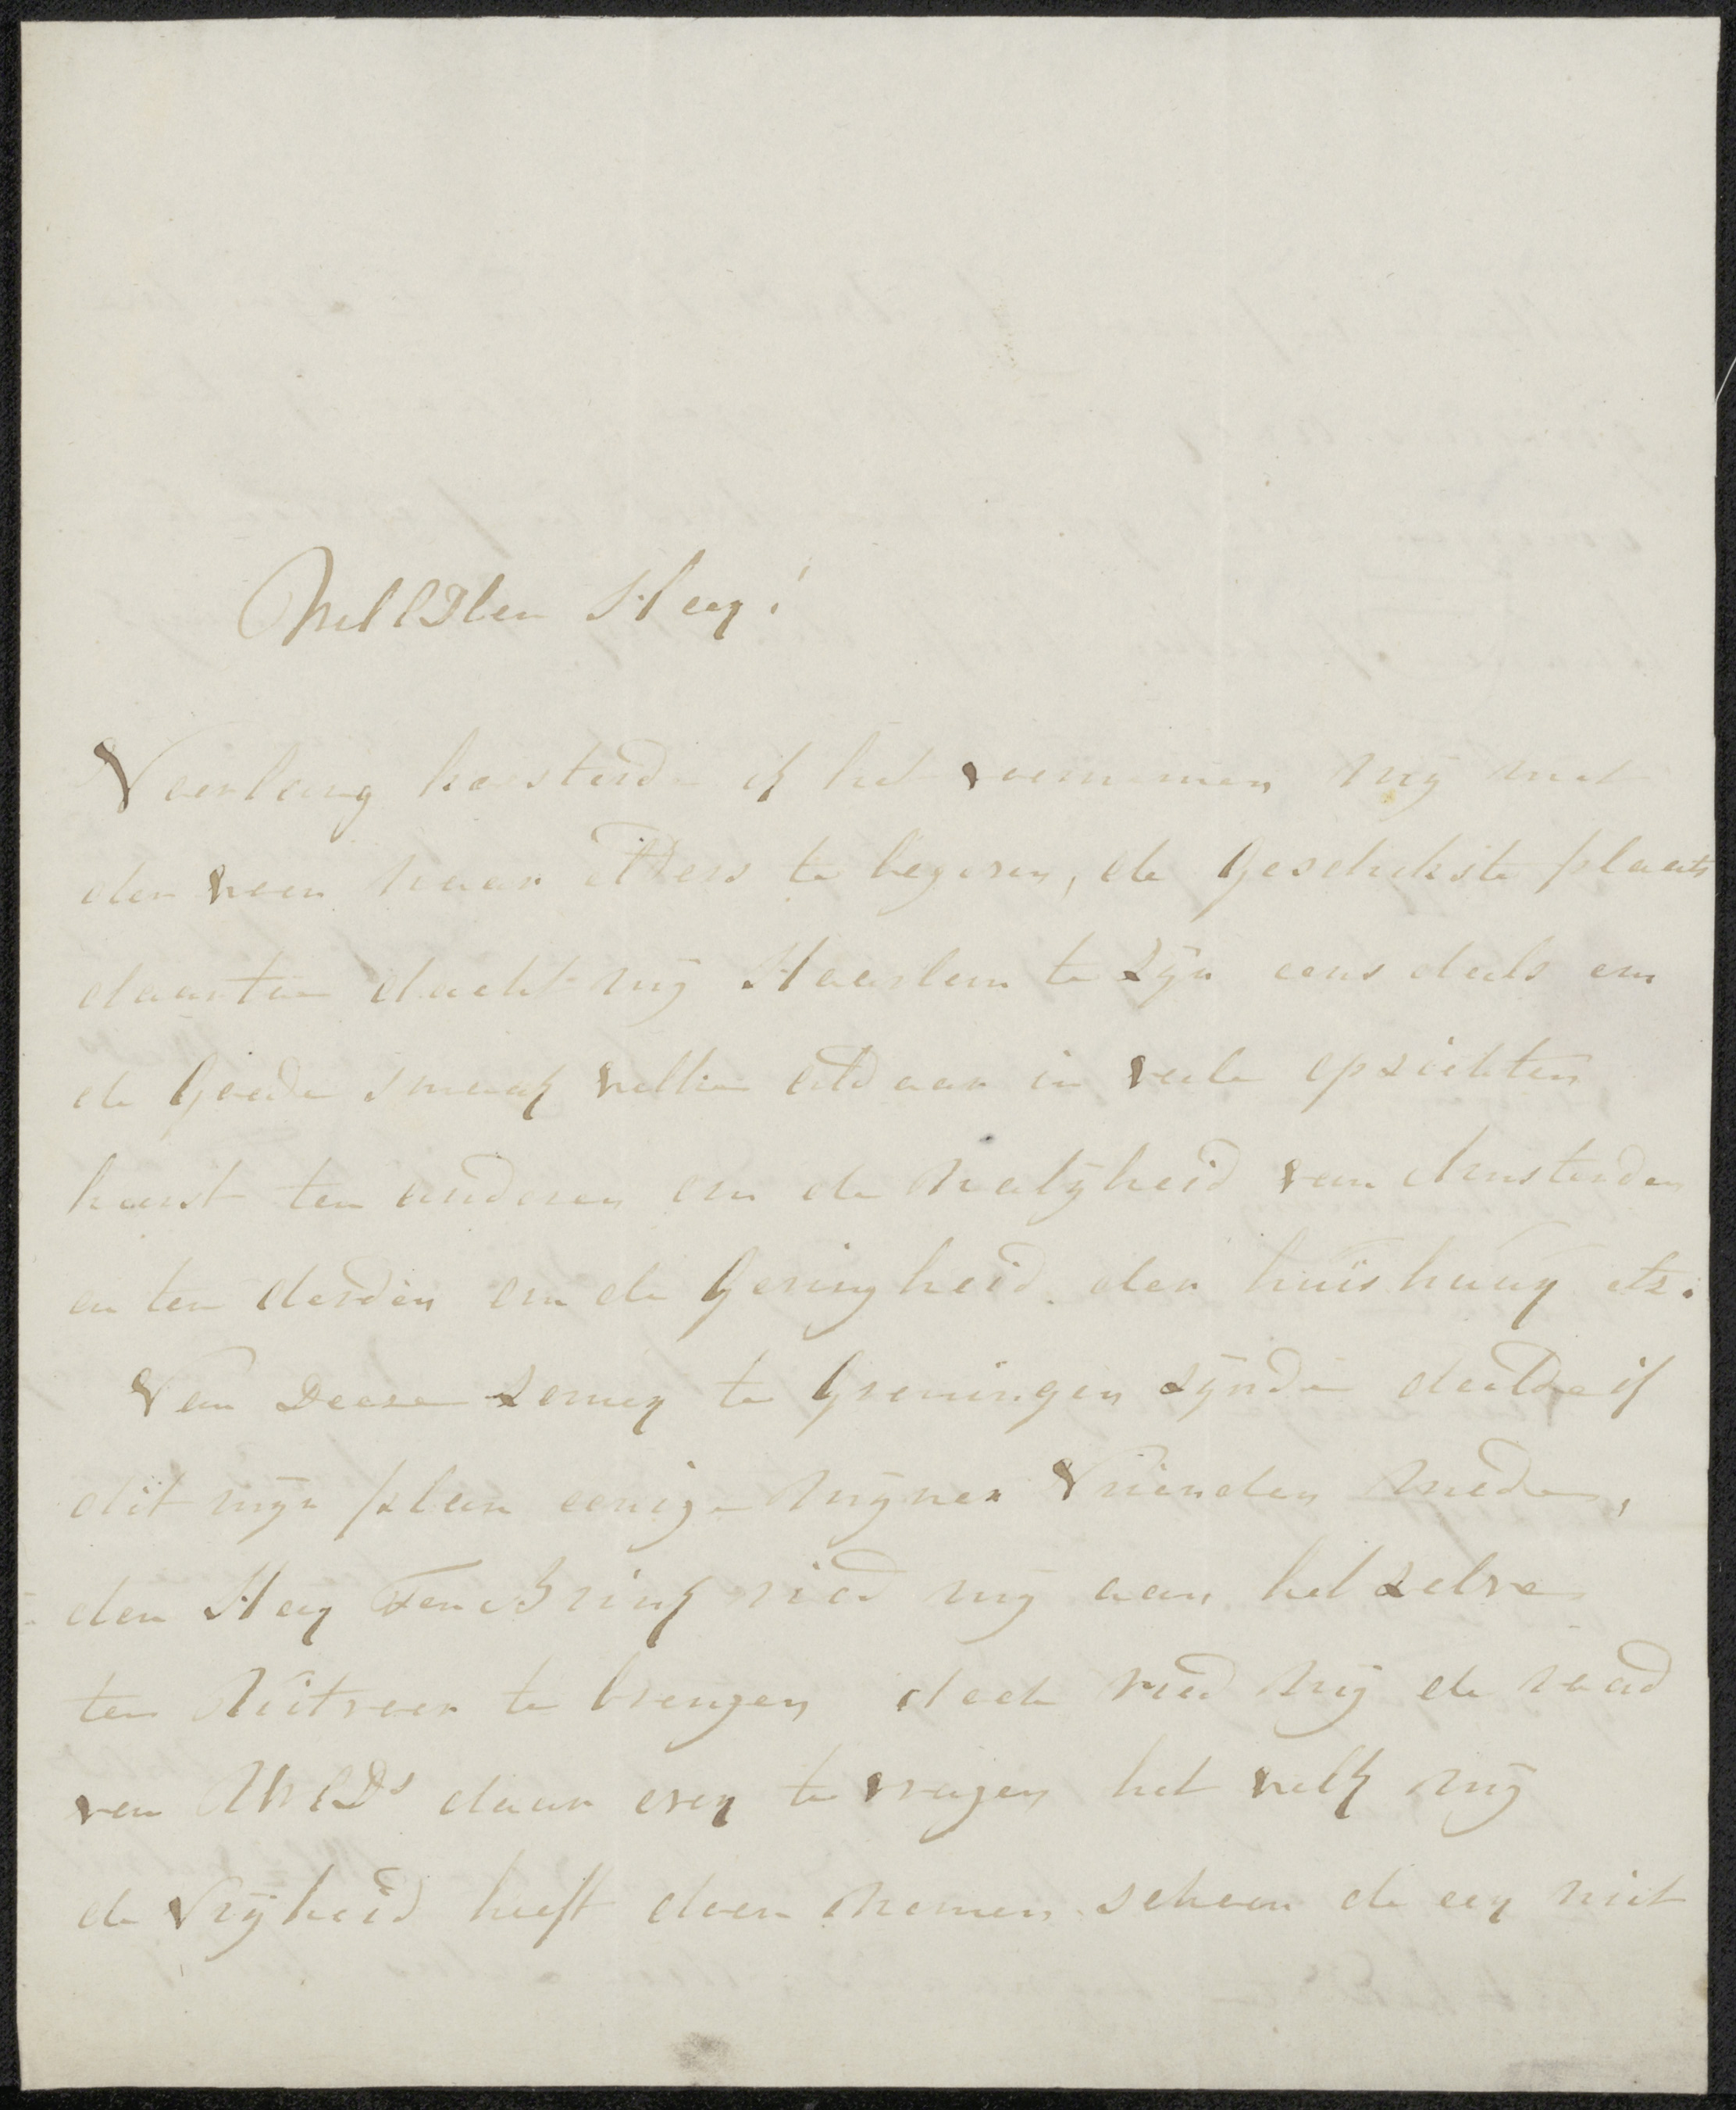 WelEDlen Heer!
Voorlang koesterde ik het voornemen mij met
der woon naar Elders te begeven, de Geschikste plaats
daartoe dacht mij Haarlem te zijn eensdeels om
de Goede smaak welke aldaar in vele opzichten
heerst ten anderen om de Nabijheid van Amsterdam
en ten derden om de Geringheid der huishuur etz.
Van Deeze zomer te Groningen zijnde deelde ik
dit mijn plan eenige Mijner Vrienden mede,
den Heer Ten Brink ried mij aan hetzelve
ten Uitvoer te brengen doch ried mij de raad
van UWEDs daar over te vragen het welk mij
de Vrijheid heeft doen Nemen schoon de eer niet